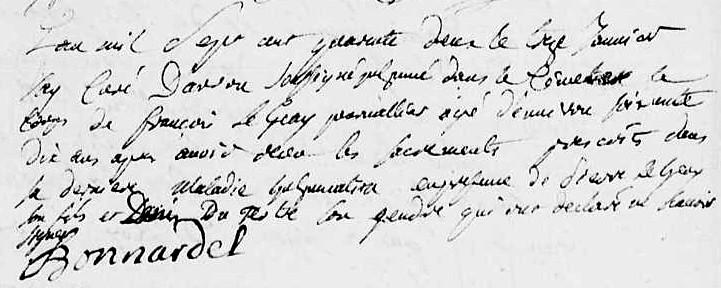 L'an mil Sept cent quarante deux le Janvier
Soussigné inhumé dans le Cimetiere le
Corps de françois le Geay journallier agé d'environ soixante
dix ans apres avoir receu les sacrements prescrits dans
sa derniere maladie Inhumation en presence de Pierre le Geay
son fils et Denis Du son gendre qui ont declaré ne scavoir
signer
Bonnardel